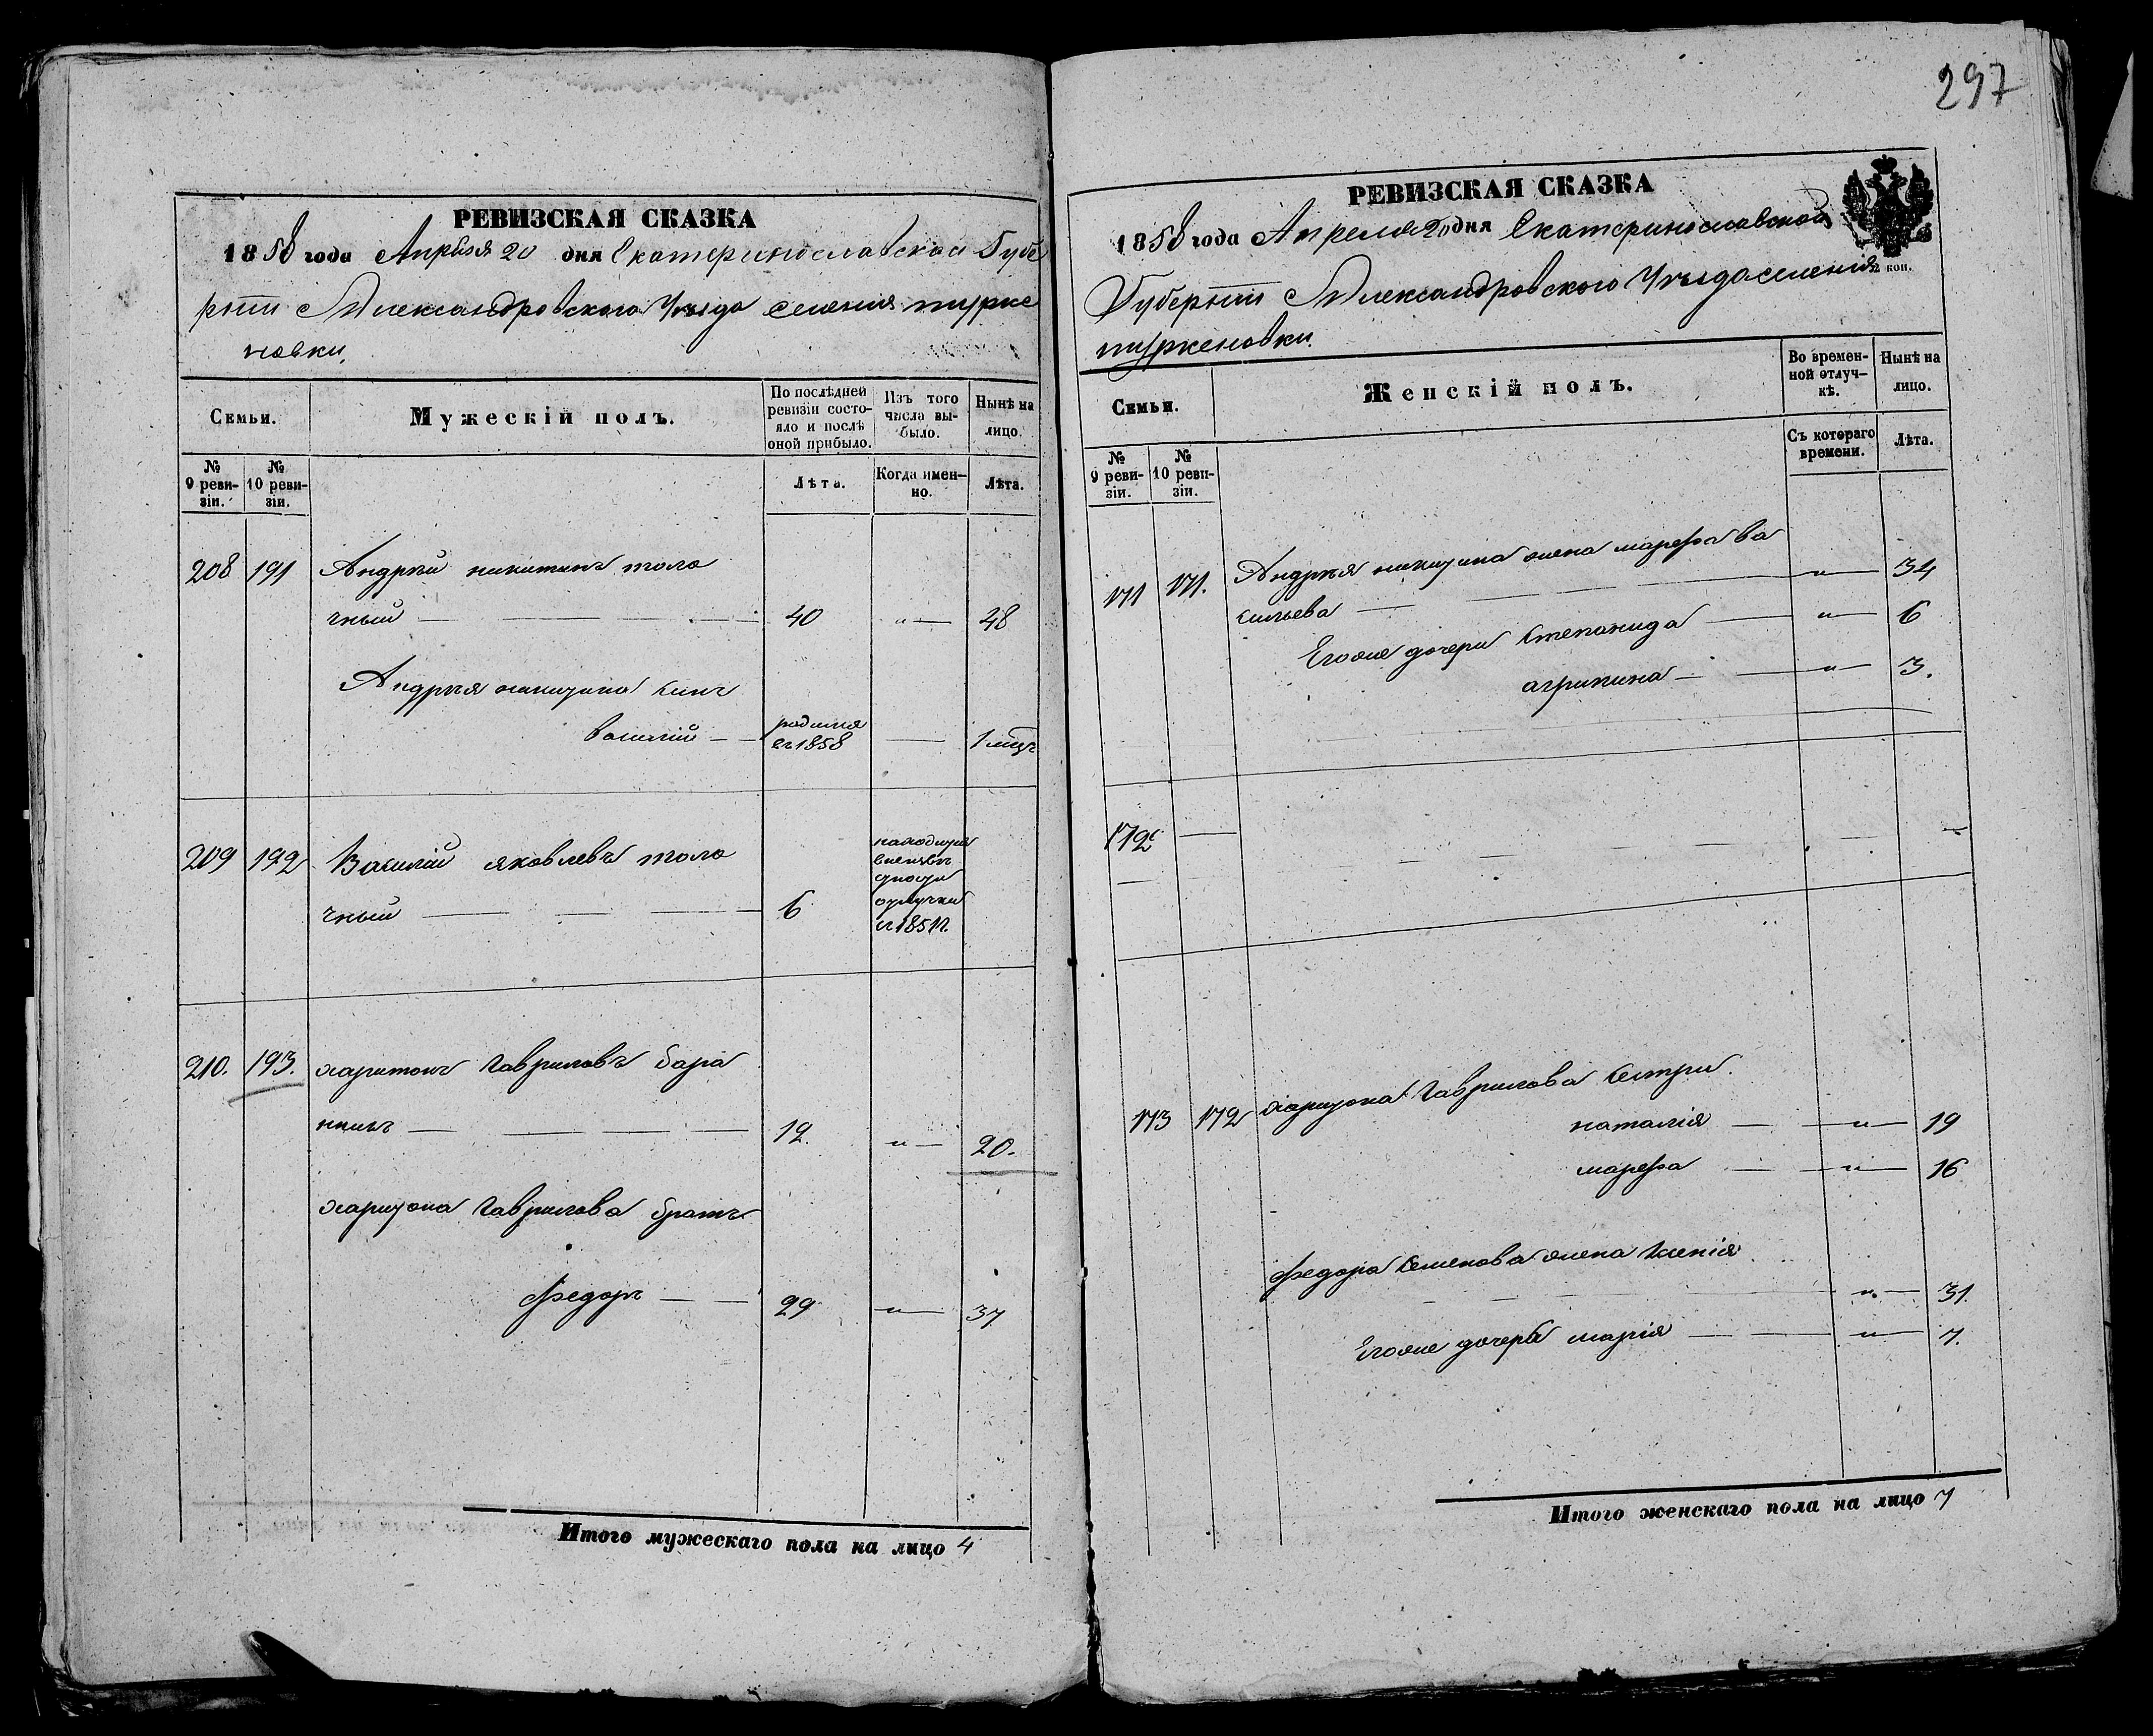 297
РЕВИЗСКАЯ СКАЗКА
1858 года Апреля 20 дня Екатеринославской Губе
рнiи Александровского Уезда селения турке
новки.
Семьи.
Мужескiй полъ.
По послѣдней ревизiи состо-
яло и послѣ оной прибыло.
Изъ того числа вы-
было.
Нынѣ на лицо.
№ 9 реви-
зiи.
№ 10 реви-
зiи.
Лѣта.
Когда имен-
но.
Лѣта.
208 191 Андрей никитинъ толо
чный 40 " 48
Андрея никитина синъ
василiй родился
съ 1858 1 мцъ
209 192 Василiй яковлевъ толо
чный 6
находится
отлучки
съ 1851 г.
210. 193. харитонъ гавриловъ бара
нникъ 12 " 20.
харитона гаврилова братъ
федоръ 29 " 37
Итого мужескаго пола на лицо 4
РЕВИЗСКАЯ СКАЗКА
1858 года Апреля 20 дня Екатеринославской
Губернiи Александровского Уезда селенiя
туркеновки.
2 коп.
Семьи.
Женскiй полъ.
Во времен-
ной отлуч-
кѣ.
Нынѣ на лицо.
№ 9 реви-
зiи.
№ 10 реви-
зiи.
Съ котораго времени.
Лѣта.
171 171. Андрея никитина жена марефа ва
сильева " 34
Егоже дочери степанида " 6
агрипина " 3.
172
173 172 харитона гаврилова сестри.
наталiя " 19
марефа " 16
федора семенова жена ксенiя
" 31.
Егоже дочерь марiя " 7.
Итого женскаго пола на лицо 7